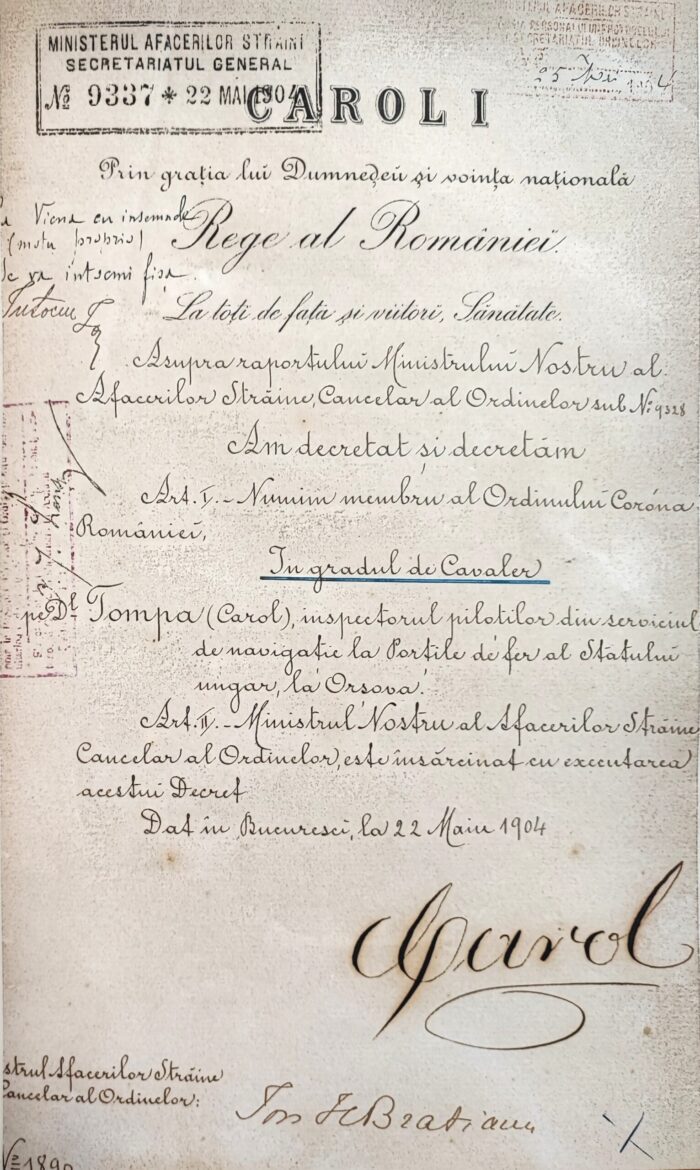 MINISTERUL AFACERILOR STRĂINE
SECRETARIATUL GENERAL
№ 9337 * 22 MAI 1904
MINISTERUL AFACERILOR STRAINE
SECRETARIATUL ORDINELOR
25
CAROL I
Prin grația lui Dumneḑeŭ și voința națională
Viena cu insemnele
(motu proprio)
Rege al României.
se va intocmi fișa.
La toți de față și viitori, Sănătate.
Asupra raportului Ministrului Nostru al
Afacerilor Străine, Cancelar al Ordinelor sub № 9328
Am decretat și decretăm
Art. I. - Numim membru al Ordinului Coróna
României,
In gradul de Cavaler
pe Dl Tompa (Carol), inspectorul piloților din serviciul
de navigație la Porțile de fer al Statului
ungar, la Orșova.
Art. II. - Ministrul Nostru al Afacerilor Străine
Cancelar al Ordinelor, este însărcinat cu executarea
acestui Decret
Dat în Bucuresci, la 22 Maiu 1904
Carol
strul Afacerilor Străine
Cancelar al Ordinelor:
Ion I C Bratianu
№ 1890